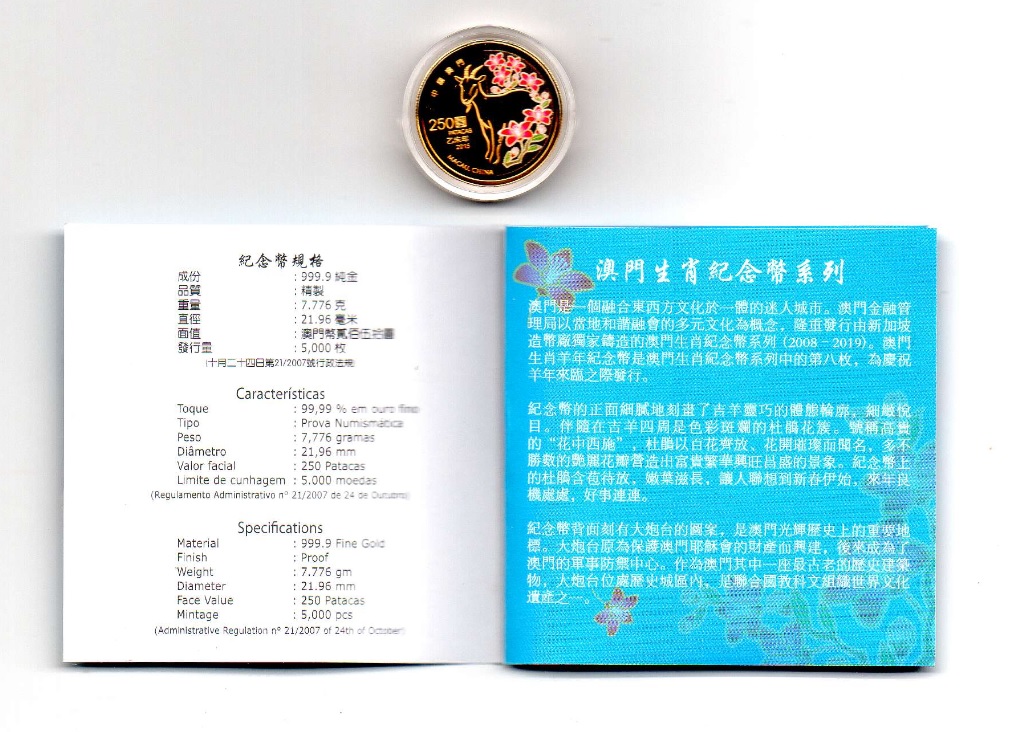 中國澳門
250圓
PATACAS
乙未年
2015
MACAU, CHINA
紀念幣規格
成份 : 999.9 純金
品質 : 精製
重量 : 7.776 克
直徑 : 21.96 毫米
面值 : 澳門幣貳佰伍拾圓
發行量 : 5,000 枚
(十月二十四日第21/2007號行政法規)
Características
Toque : 99,99 % em ouro fino
Tipo : Prova Numismática
Peso : 7,776 gramas
Diâmetro : 21,96 mm
Valor facial : 250 Patacas
Limite de cunhagem : 5.000 moedas
(Regulamento Administrativo nº 21/2007 de 24 de Outubro)
Specifications
Material : 999.9 Fine Gold
Finish : Proof
Weight : 7.776 gm
Diameter : 21.96 mm
Face Value : 250 Patacas
Mintage : 5,000 pcs
(Administrative Regulation nº 21/2007 of 24th of October)
澳門生肖紀念幣系列
澳門是一個融合東西方文化於一體的迷人城市。澳門金融管
理局以當地和諧融會的多元文化為概念，隆重發行由新加坡
造幣廠獨家鑄造的澳門生肖紀念幣系列 (2008－2019)。澳門
生肖羊年紀念幣是澳門生肖紀念幣系列中的第八枚，為慶祝
羊年來臨之際發行。
紀念幣的正面細膩地刻畫了吉羊靈巧的體態輪廓，細緻悅
目。伴隨在吉羊四周是色彩斑斕的杜鵑花簇。號稱高貴
的“花中西施”，杜鵑以百花齊放、花開璀璨而聞名，多不
勝數的艷麗花瓣營造出富貴繁華興旺昌盛的景象。紀念幣上
的杜鵑含苞待放，嫩葉滋長，讓人聯想到新春伊始，來年良
機處處，好事連連。
紀念幣背面刻有大炮台的圖案，是澳門光輝歷史上的重要地
標。大炮台原為保護澳門耶穌會的財產而興建，後來成為了
澳門的軍事防禦中心。作為澳門其中一座最古老的歷史建築
物，大炮台位處歷史城區內，是聯合國教科文組織世界文化
遺產之一。